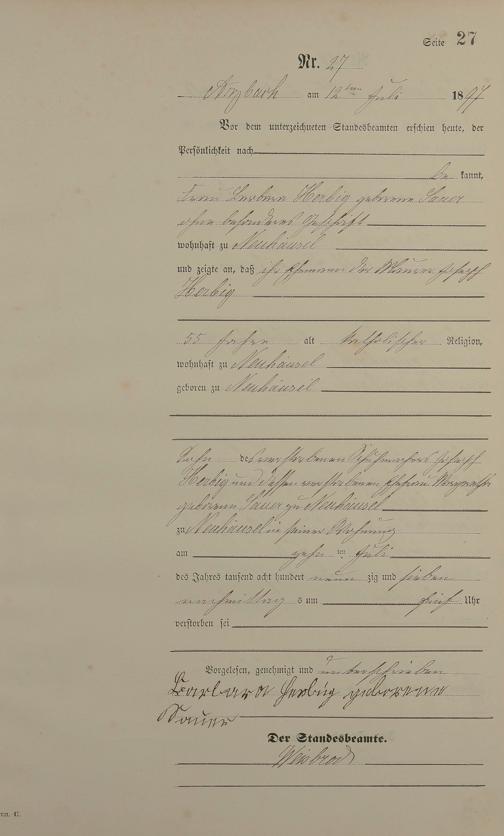 Seite 27
Nr. 27
Arzbach am 12ten Juli 1897
Vor dem unterzeichneten Standesbeamten erschien heute, der
Persönlichkeit nach
be kannt,
Frau Barbara Herbig geborene Sauer
ohne besonderes Geschäft
wohnhaft zu Neuhäusel
und zeigte an, daß ihr Ehemann der Maurer Joseph
Herbig
55 Jahre alt katholischer Religion,
wohnhaft zu Neuhäusel
geboren zu Neuhäusel
Sohn des verstorbenen Schuhmachers Joseph
Herbig und dessen verstorbenen Ehefrau Margaretha
geborenen Sauer zu Neuhäusel
zu Neuhäusel in seiner Wohnung
am zehn ten Juli
des Jahres tausend acht hundert neun zig und sieben
nachmittag s um fünf Uhr
verstorben sei
Vorgelesen, genehmigt und unterschrieben
Barbara Herbig geborene
Sauer
Der Standesbeamte.
Weinbrod